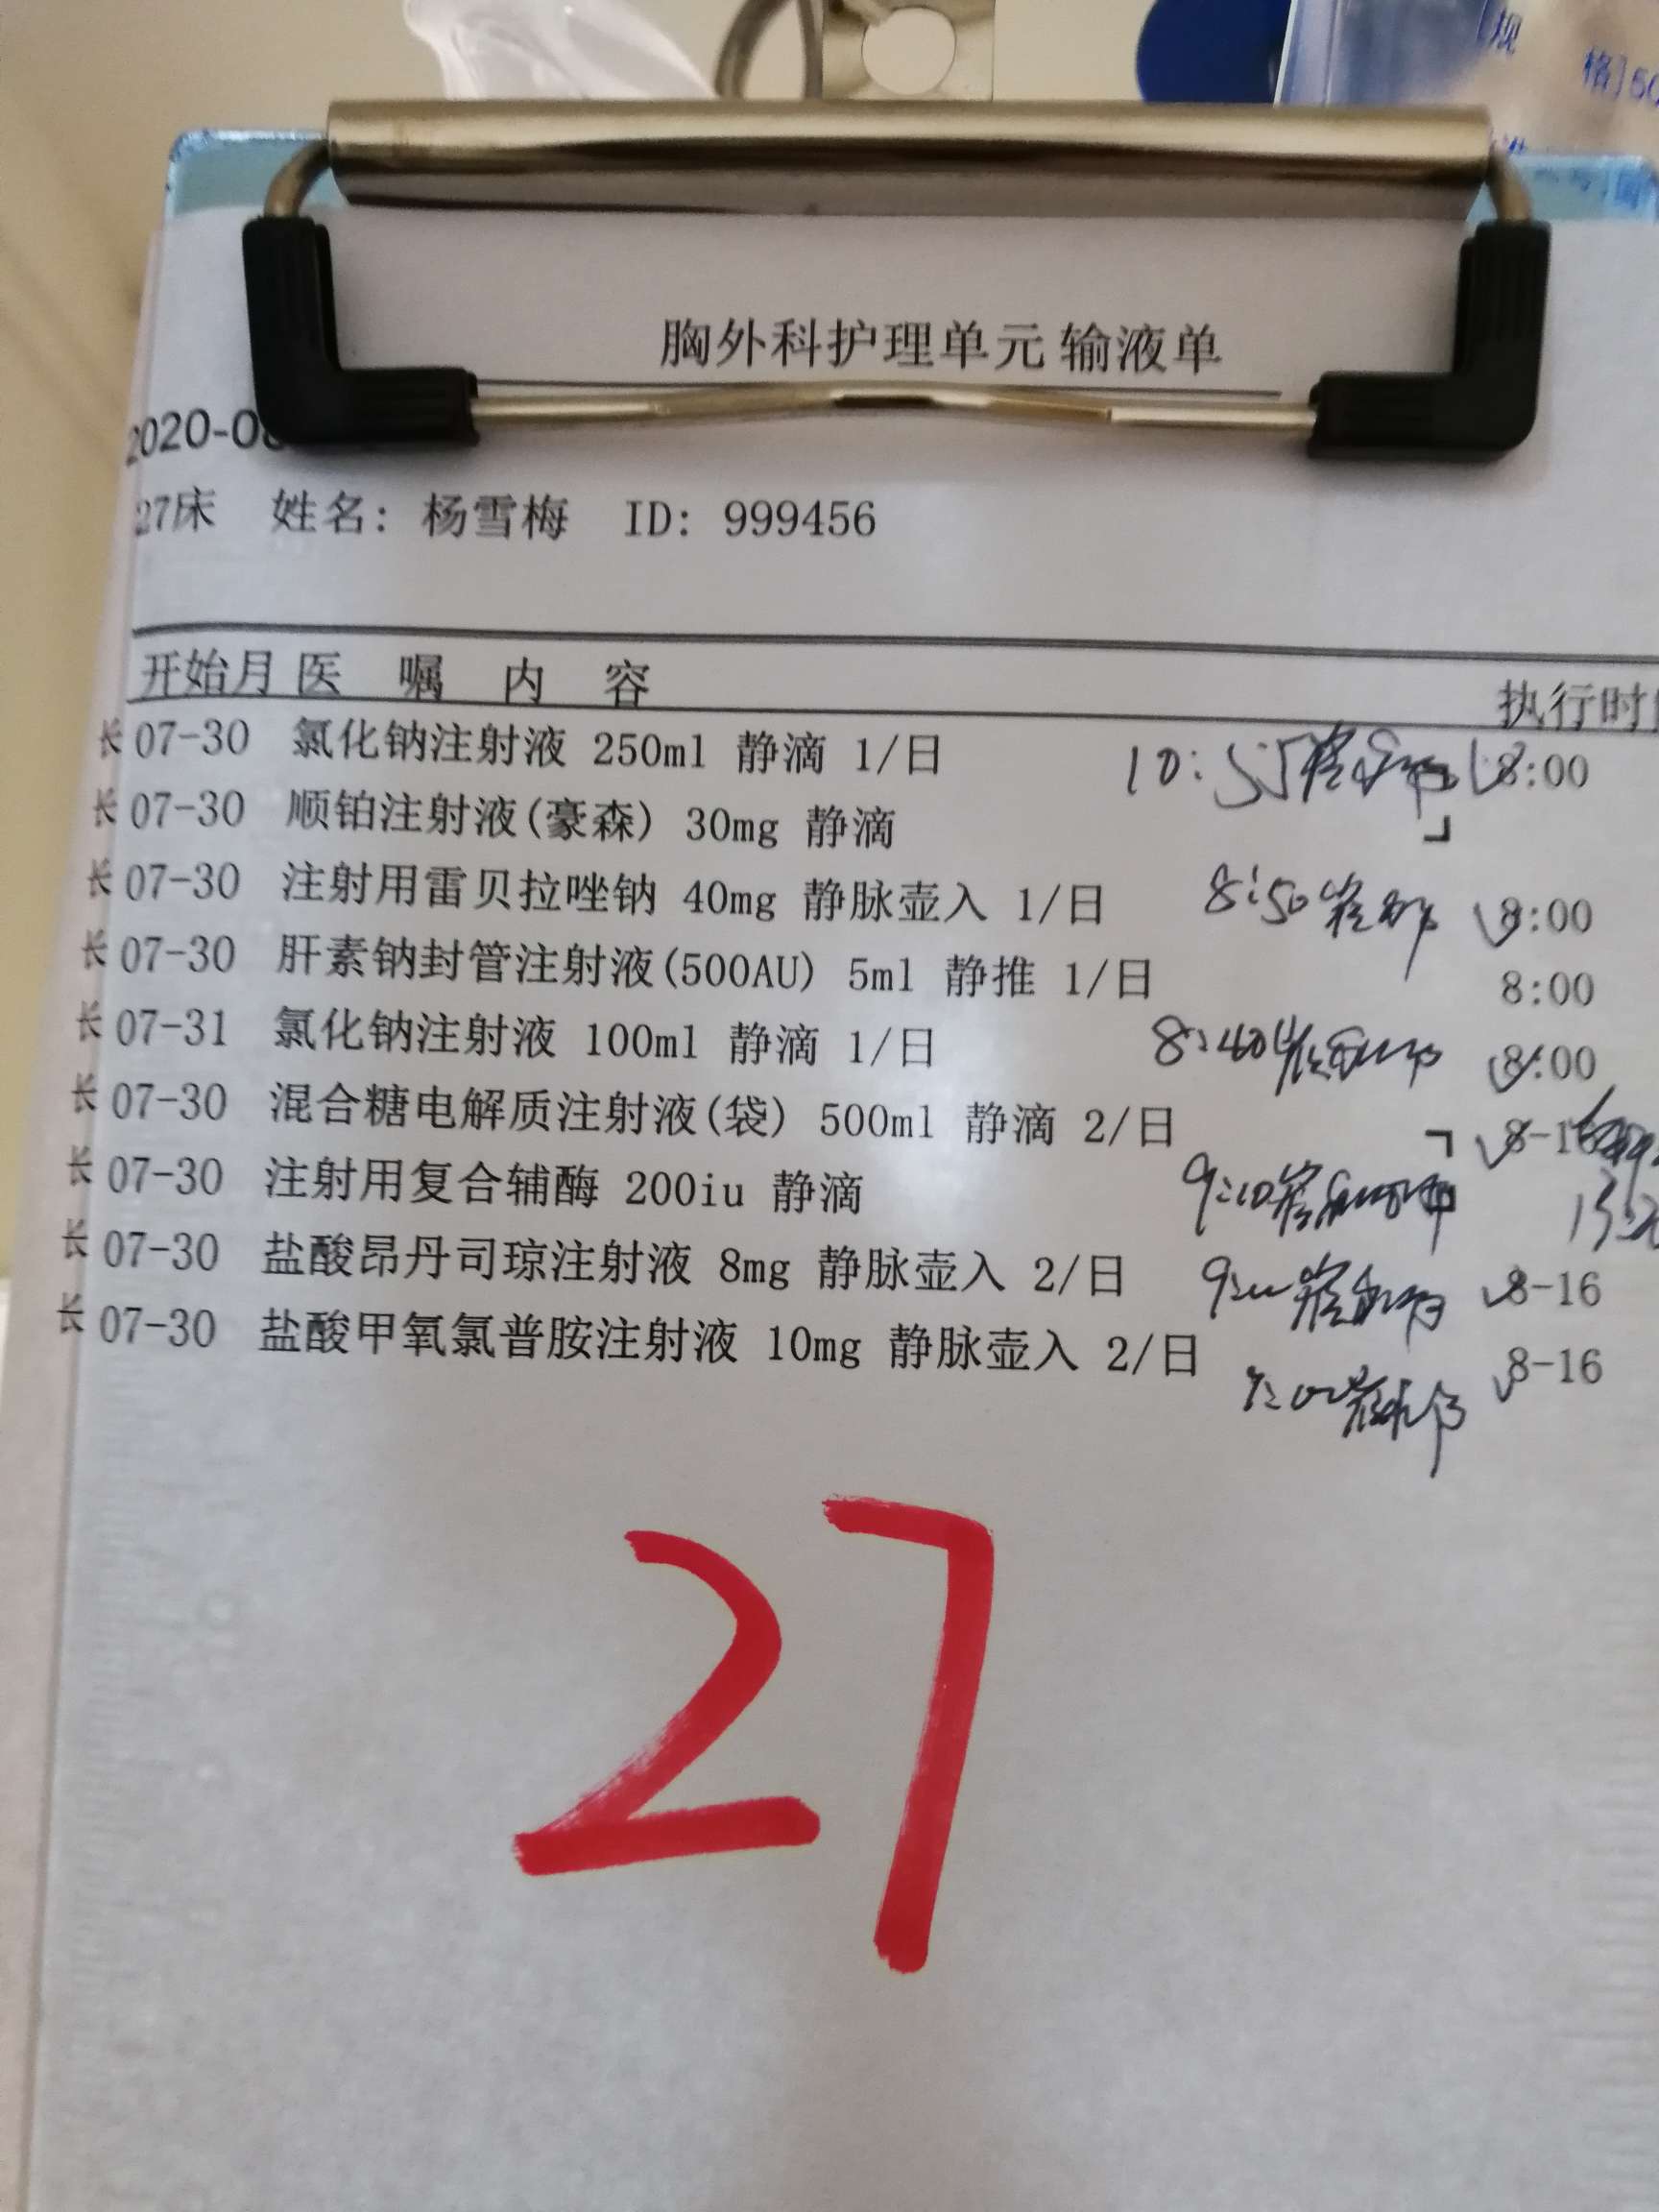 [规
格]50
胸外科护理单元 输液单
2020-0
27床 姓名: 杨雪梅 ID: 999456
开始月 医 嘱 内 容 执行时
长 07-30 氯化钠注射液 250ml 静滴 1/日 10:55 8:00
长 07-30 顺铂注射液(豪森) 30mg 静滴
长 07-30 注射用雷贝拉唑钠 40mg 静脉壶入 1/日 8:50 8:00
长 07-30 肝素钠封管注射液(500AU) 5ml 静推 1/日 8:00
长 07-31 氯化钠注射液 100ml 静滴 1/日 8:40 8:00
长 07-30 混合糖电解质注射液(袋) 500ml 静滴 2/日 8-16
长 07-30 注射用复合辅酶 200iu 静滴 9:10
长 07-30 盐酸昂丹司琼注射液 8mg 静脉壶入 2/日 8-16
长 07-30 盐酸甲氧氯普胺注射液 10mg 静脉壶入 2/日 8-16
27